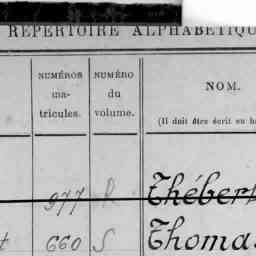 RÉPERTOIRE ALPHABÉTIQU
NUMÉROS ma- tricules. NUMÉRO du volume. NOM.
(Il doit être écrit en b
977 Thébert
t 660 S Thomas